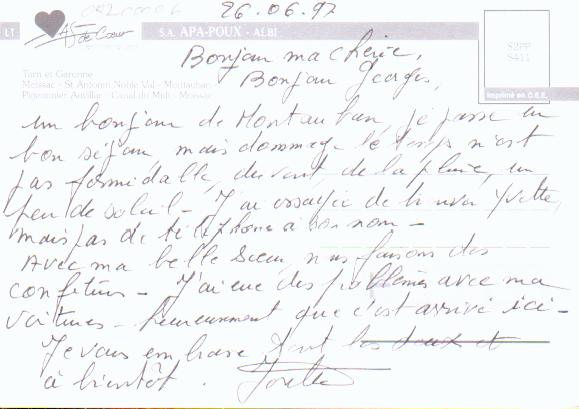 26.06.97
LT
As de Cœur
S.A. APA-POUX - ALBI
S2PP
S411
Bonjour ma chérie,
Tarn et Garonne
Bonjour Georges,
Moissac - St Antonin Noble Val - Montauban
Pigeonnier Auvillar - Canal du Midi - Moissac
Imprimé en C.E.E.
un bonjour de Montauban, je passe un
bon séjour, mais dommage le temps n'est
pas formidable, du vent, de la pluie, un
peu de soleil - J'ai essayée de trouver Yvette,
mais pas de téléphone à son nom -
Avec ma belle Sœur, nous faisons des
confitures - J'ai eue des problèmes avec ma
voitures - heureusement que c'est arrivé ici -
Je vous embrasse tout les deux et
à bientôt. Josette